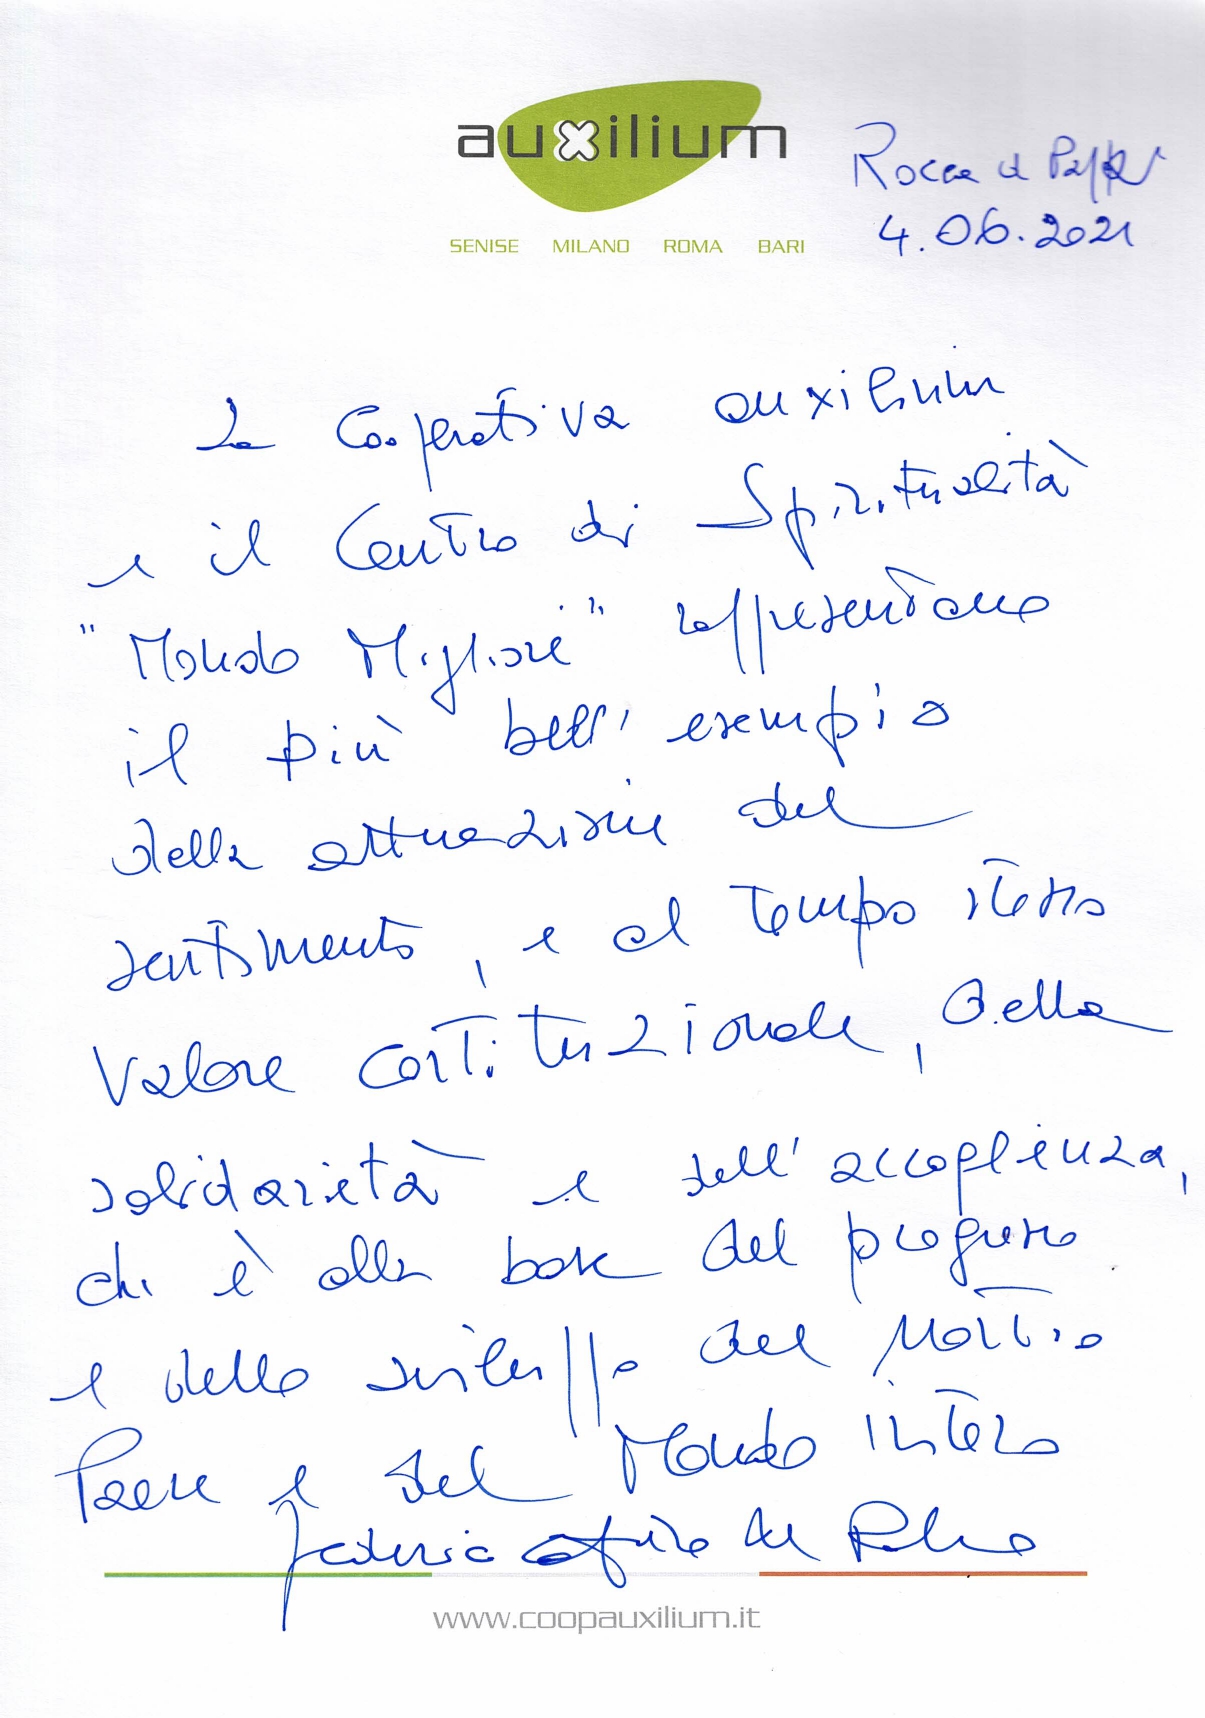 auxilium
SENISE MILANO ROMA BARI
Rocca di Papa
4.06.2021
La Cooperativa auxilium
e il Centro di Spiritualità
"Mondo Migliore" rappresentano
il più bell'esempio
della attuazione del
sentimento, e al tempo stesso
Valore costituzionale, della
solidarietà e dell'accoglienza,
che è alla base del progresso
e dello sviluppo del nostro
Paese e del Mondo intero
Federico
www.coopauxilium.it